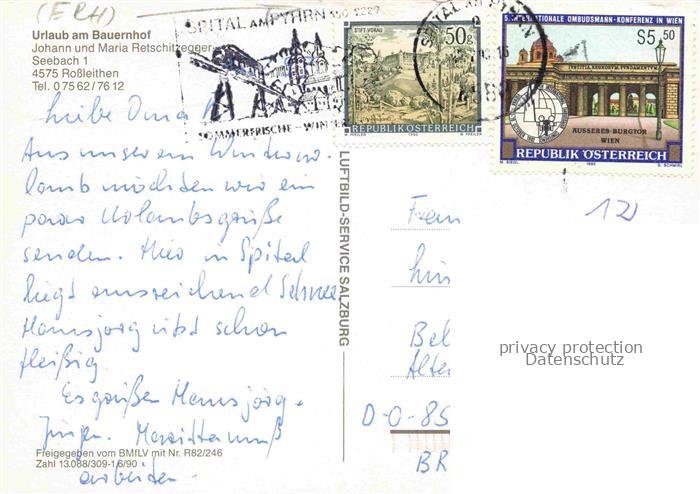 (ERH)
Urlaub am Bauernhof
Johann und Maria Retschitzegger
Seebach 1
4575 Roßleithen
Tel. 0 75 62 / 76 12
SPITAL AM PYHRN
SOMMERFRISCHE - WINTER
STIFT VORAU
50g
REPUBLIK ÖSTERREICH
SPITAL AM PYHRN
5. INTERNATIONALE OMBUDSMANN-KONFERENZ IN WIEN
S5,50
ÄUSSERES BURGTOR
WIEN
REPUBLIK ÖSTERREICH
Liebe Oma
Aus unserem Winterur-
laub möchten wir ein
paar Urlaubsgrüße
senden. Hier in Spital
liegt ausreichend Schnee
Hansjörg übt schon
fleißig.
Es grüßen Hansjörg,
muß
arbeiten.
Freigegeben vom BMfLV mit Nr. R82/246
Zahl 13.088/309-1.6/90
LUFTBILD-SERVICE SALZBURG
120
Bel
Alte
D-O-85
BR
privacy protection
Datenschutz